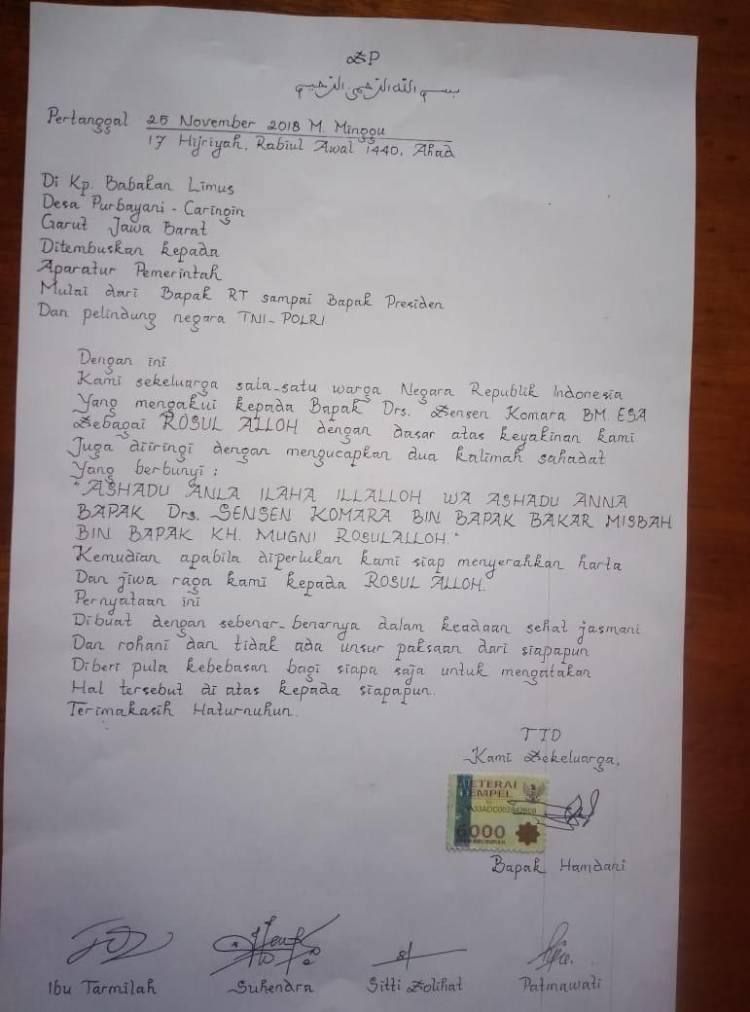 SP
بسم الله الرحمن الرحيم
Pertanggal 25 November 2018 M. Minggu
17 Hijriyah, Rabiul Awal 1440, Ahad
Di Kp. Babakan Limus
Desa Purbayani - Caringin
Garut Jawa Barat
Ditembuskan kepada
Aparatur Pemerintah
Mulai dari Bapak RT sampai Bapak Presiden
Dan pelindung negara TNI-POLRI
Dengan ini
Kami sekeluarga sala-satu warga Negara Republik Indonesia
Yang mengakui kepada Bapak Drs. Sensen Komara BM. ESA
Sebagai ROSUL ALLOH dengan dasar atas keyakinan kami
Juga diiringi dengan mengucapkan dua kalimah sahadat
Yang berbunyi :
"ASHADU ANLA ILAHA ILLALLOH WA ASHADU ANNA
BAPAK Drs. SENSEN KOMARA BIN BAPAK BAKAR MISBAH
BIN BAPAK KH. MUGNI ROSULALLOH."
Kemudian apabila diperlukan kami siap menyerahkan harta
Dan jiwa raga kami kepada ROSUL ALLOH.
Pernyataan ini
Dibuat dengan sebenar-benarnya dalam keadaan sehat jasmani
Dan rohani dan tidak ada unsur paksaan dari siapapun
Diberi pula kebebasan bagi siapa saja untuk mengatakan
Hal tersebut di atas kepada siapapun.
Terimakasih Haturnuhun.
TTD
Kami Sekeluarga,
METERAI
TEMPEL
6000
Bapak Hamdani
Ibu Tarmilah Suhendra Sitti Solihat Patmawati